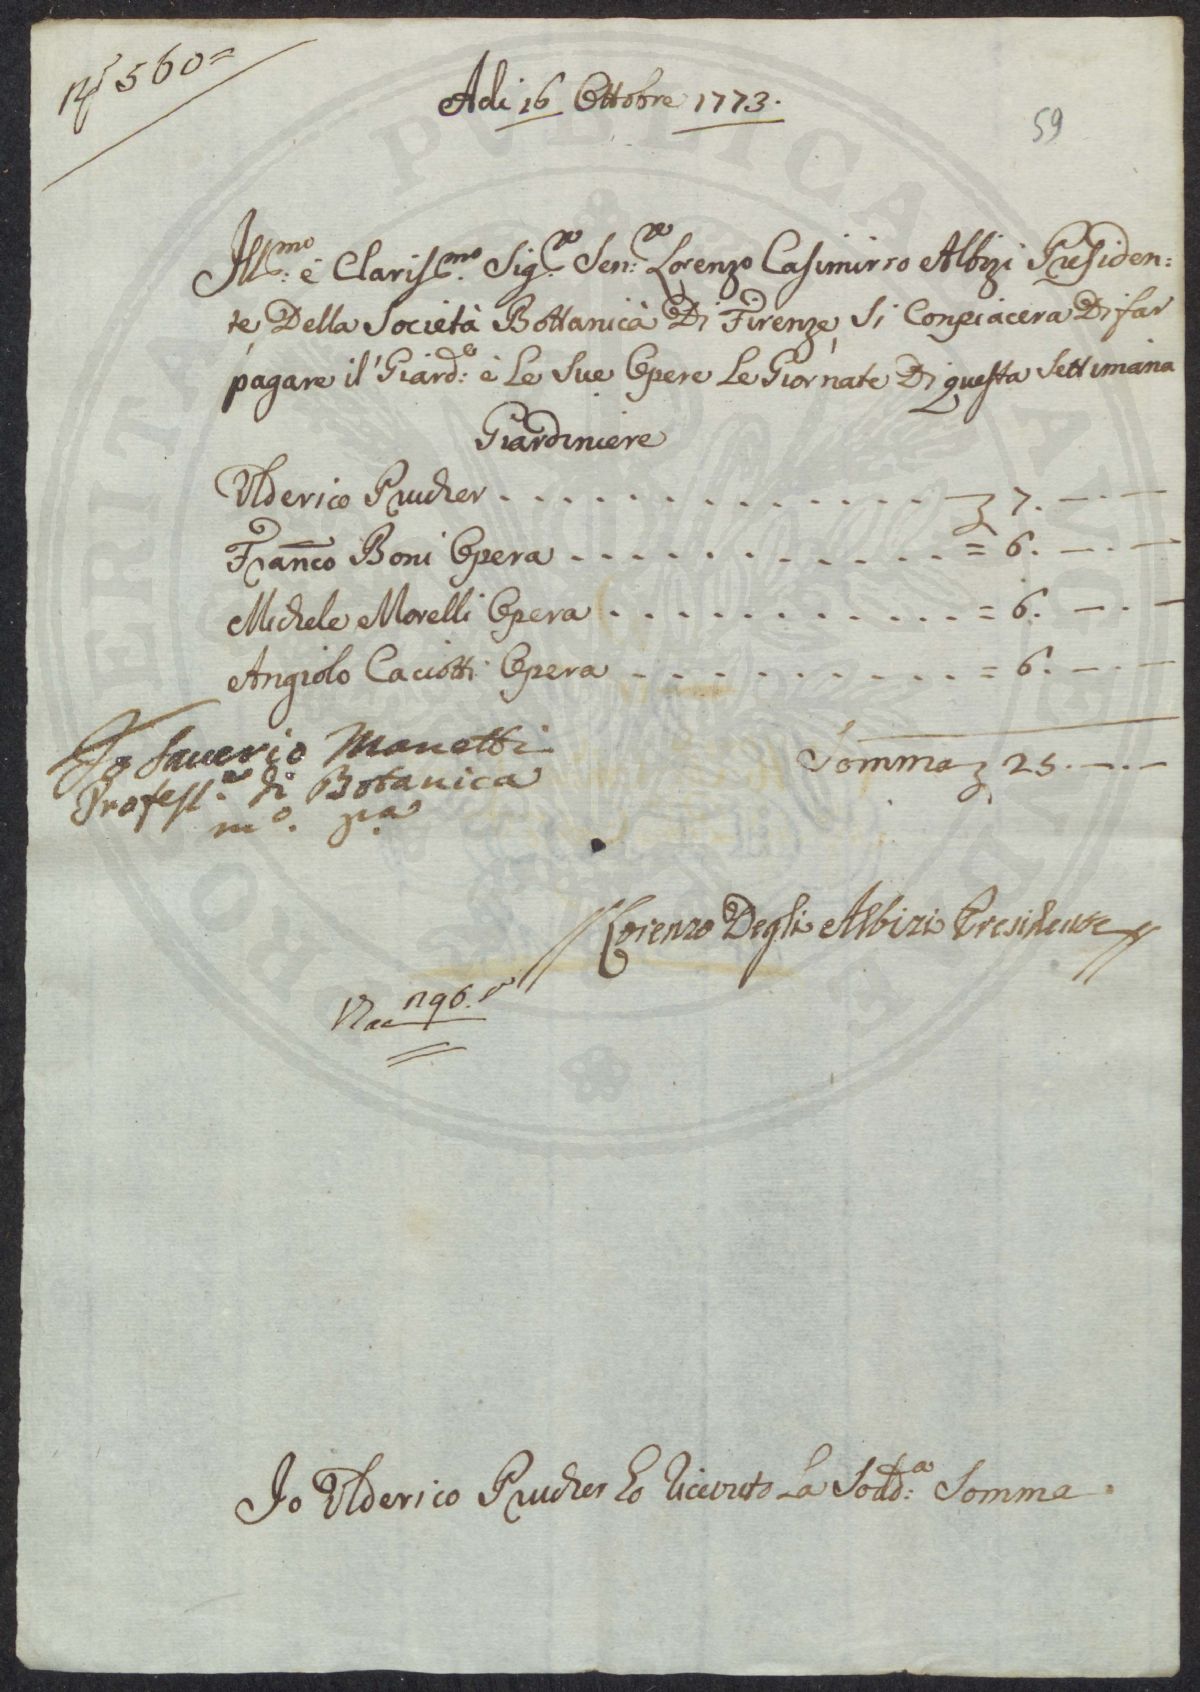 N.º 560=
Adi 16 Ottobre 1773.
59
Ill.mo e Clariss.mo Sig.re Sen.re Lorenzo Casimirro Albizi Presiden=
te Della Società Bottanica Di Firenze, Si Conpiacera Di far
pagare il Giard.e è Le Sue Opere Le Giornate Di questa Settimana
Giardiniere
Ulderico Prucher - - - - - - - - - - - - - - £ 7. —.—
Fran.co Boni Opera - - - - - - - - - - - - = 6. —.—
Michele Morelli Opera - - - - - - - - - - - = 6. —.—
Angiolo Caciotti Opera - - - - - - - - - - = 6. —.—
Somma £ 25.—.—
Io Saverio Manetti
Profess.re di Botanica
m.o p.a
Lorenzo Degli Albizi Presidente
196.
Io Ulderico Prucher ho Ricevuto La Sodd.a Somma.